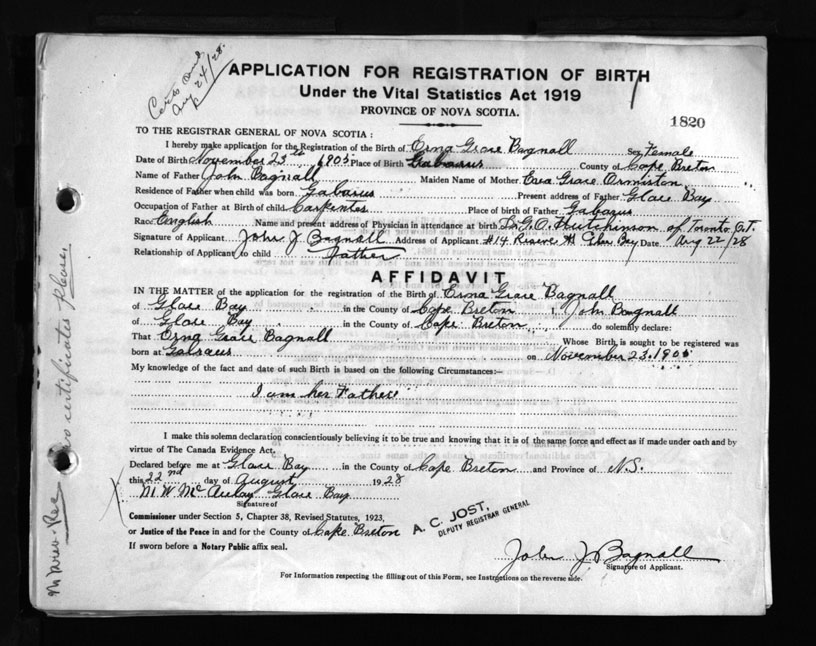 Certs
Aug 24/28.
APPLICATION FOR REGISTRATION OF BIRTH
Under the Vital Statistics Act 1919
PROVINCE OF NOVA SCOTIA.
1820
TO THE REGISTRAR GENERAL OF NOVA SCOTIA:
I hereby make application for the Registration of the Birth of Erna Grace Bagnall Sex Female
Date of Birth November 23rd 1905 Place of Birth Gabarus County of Cape Breton
Name of Father John Bagnall Maiden Name of Mother Grace Ormiston
Residence of Father when child was born Gabarus Present address of Father Glace Bay
Occupation of Father at Birth of child Carpenter Place of Birth of Father Gabarus
Race English Name and present address of Physician in attendance at birth Hutchinson of Toronto
Signature of Applicant John J Bagnall Address of Applicant #14 Reserve St Glace Bay Date Aug 22/28
Relationship of Applicant to child Father
AFFIDAVIT
IN THE MATTER of the application for the registration of the Birth of Erna Grace Bagnall
of Glace Bay in the County of Cape Breton I, John Bagnall
of Glace Bay in the County of Cape Breton do solemnly declare:
That Erna Grace Bagnall Whose Birth is sought to be registered was
born at Gabarus on November 23. 1905
My knowledge of the fact and date of such Birth is based on the following Circumstances:—
I am her Father
I make this solemn declaration conscientiously believing it to be true and knowing that it is of the same force and effect as if made under oath and by
virtue of The Canada Evidence Act.
Declared before me at Glace Bay in the County of Cape Breton and Province of N.S.
this 22nd day of August 1928
M W McAulay Glace Bay
Signature of
Commissioner under Section 5, Chapter 38, Revised Statutes, 1923,
or Justice of the Peace in and for the County of Cape Breton
If sworn before a Notary Public affix seal.
A. C. JOST,
DEPUTY REGISTRAR GENERAL
John J Bagnall
Signature of Applicant.
For Information respecting the filling out of this Form, see Instructions on the reverse side.
two certificates please